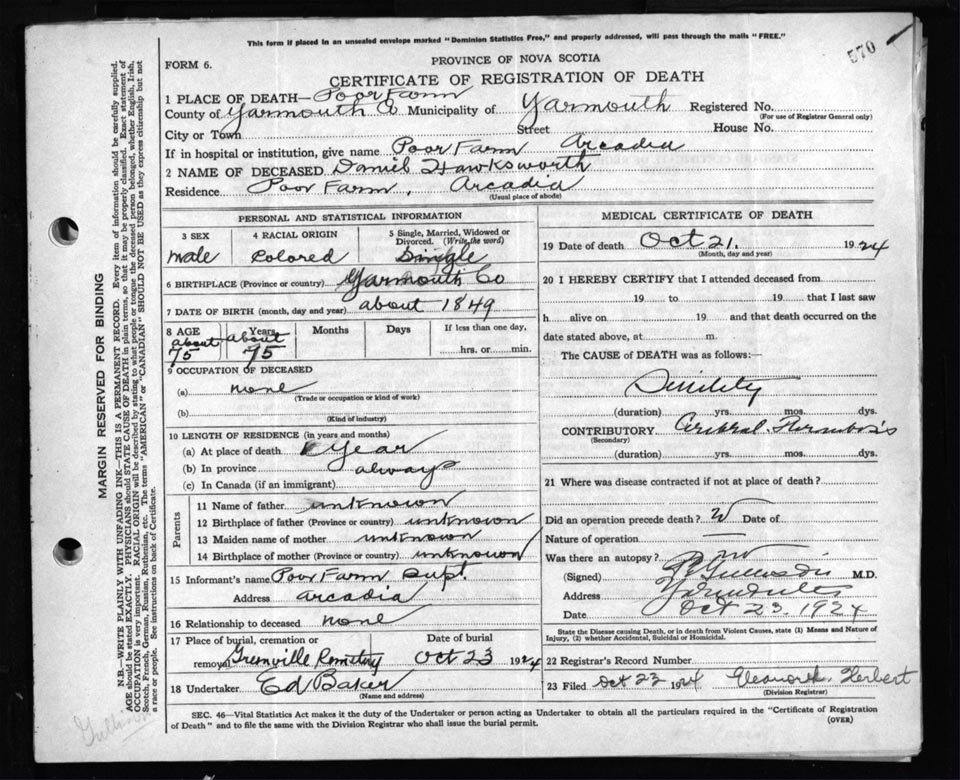 This form if placed in an unsealed envelope marked "Dominion Statistics Free," and properly addressed, will pass through the mails "FREE."
570
FORM 6.
PROVINCE OF NOVA SCOTIA
CERTIFICATE OF REGISTRATION OF DEATH
1 PLACE OF DEATH— Poor Farm
County of Yarmouth Co Municipality of Yarmouth Registered No.
(For use of Registrar General only)
City or Town Street House No.
If in hospital or institution, give name Poor Farm Arcadia
2 NAME OF DECEASED Daniel Hawksworth
Residence Poor Farm, Arcadia
(Usual place of abode)
PERSONAL AND STATISTICAL INFORMATION
3 SEX 4 RACIAL ORIGIN 5 Single, Married, Widowed or Divorced. (Write the word)
Male Colored Single
6 BIRTHPLACE (Province or country) Yarmouth Co
7 DATE OF BIRTH (month, day and year) about 1849
8 AGE Years Months Days If less than one day,
about 75 about 75 hrs. or min.
9 OCCUPATION OF DECEASED
(a) none
(Trade or occupation or kind of work)
(b)
(Kind of industry)
10 LENGTH OF RESIDENCE (in years and months)
(a) At place of death Year
(b) In province always
(c) In Canada (if an immigrant)
Parents
11 Name of father unknown
12 Birthplace of father (Province or country) unknown
13 Maiden name of mother unknown
14 Birthplace of mother (Province or country) unknown
15 Informant's name Poor Farm Supt.
Address Arcadia
16 Relationship to deceased none
17 Place of burial, cremation or Date of burial
removal Greenville Cemetery Oct 23 1924
18 Undertaker Ed Baker
(Name and address)
MEDICAL CERTIFICATE OF DEATH
19 Date of death Oct 21. 1924
(Month, day and year)
20 I HEREBY CERTIFY that I attended deceased from
19 to 19 that I last saw
h alive on 19 and that death occurred on the
date stated above, at m.
The CAUSE of DEATH was as follows:
Senility
(duration) yrs. mos. dys.
CONTRIBUTORY Cerebral Thrombosis
(Secondary)
(duration) yrs. mos. dys.
21 Where was disease contracted if not at place of death?
Did an operation precede death? Date of
Nature of operation —
Was there an autopsy?
(Signed) M.D.
Address Yarmouth
Date Oct 23. 1924
State the Disease causing Death, or in death from Violent Causes, state (1) Means and Nature of Injury, (2) whether Accidental, Suicidal or Homicidal.
22 Registrar's Record Number
23 Filed Oct 23 1924 Eleanor H. Herbert
(Division Registrar)
SEC. 46—Vital Statistics Act makes it the duty of the Undertaker or person acting as Undertaker to obtain all the particulars required in the "Certificate of Registration
of Death" and to file the same with the Division Registrar who shall issue the burial permit. (OVER)
MARGIN RESERVED FOR BINDING
N.B.—WRITE PLAINLY WITH UNFADING INK—THIS IS A PERMANENT RECORD. Every item of information should be carefully supplied.
AGE should be stated EXACTLY. PHYSICIANS should STATE CAUSE OF DEATH in plain terms, so that it may be properly classified. Exact statement of
OCCUPATION is very important. RACIAL ORIGIN will be described by stating to what people or tongue the deceased person belonged, whether English, Irish,
Scotch, French, German, Russian, Ruthenian, etc. The terms "AMERICAN" or "CANADIAN" SHOULD NOT BE USED as they express citizenship but not
a race or people. See instructions on back of Certificate.